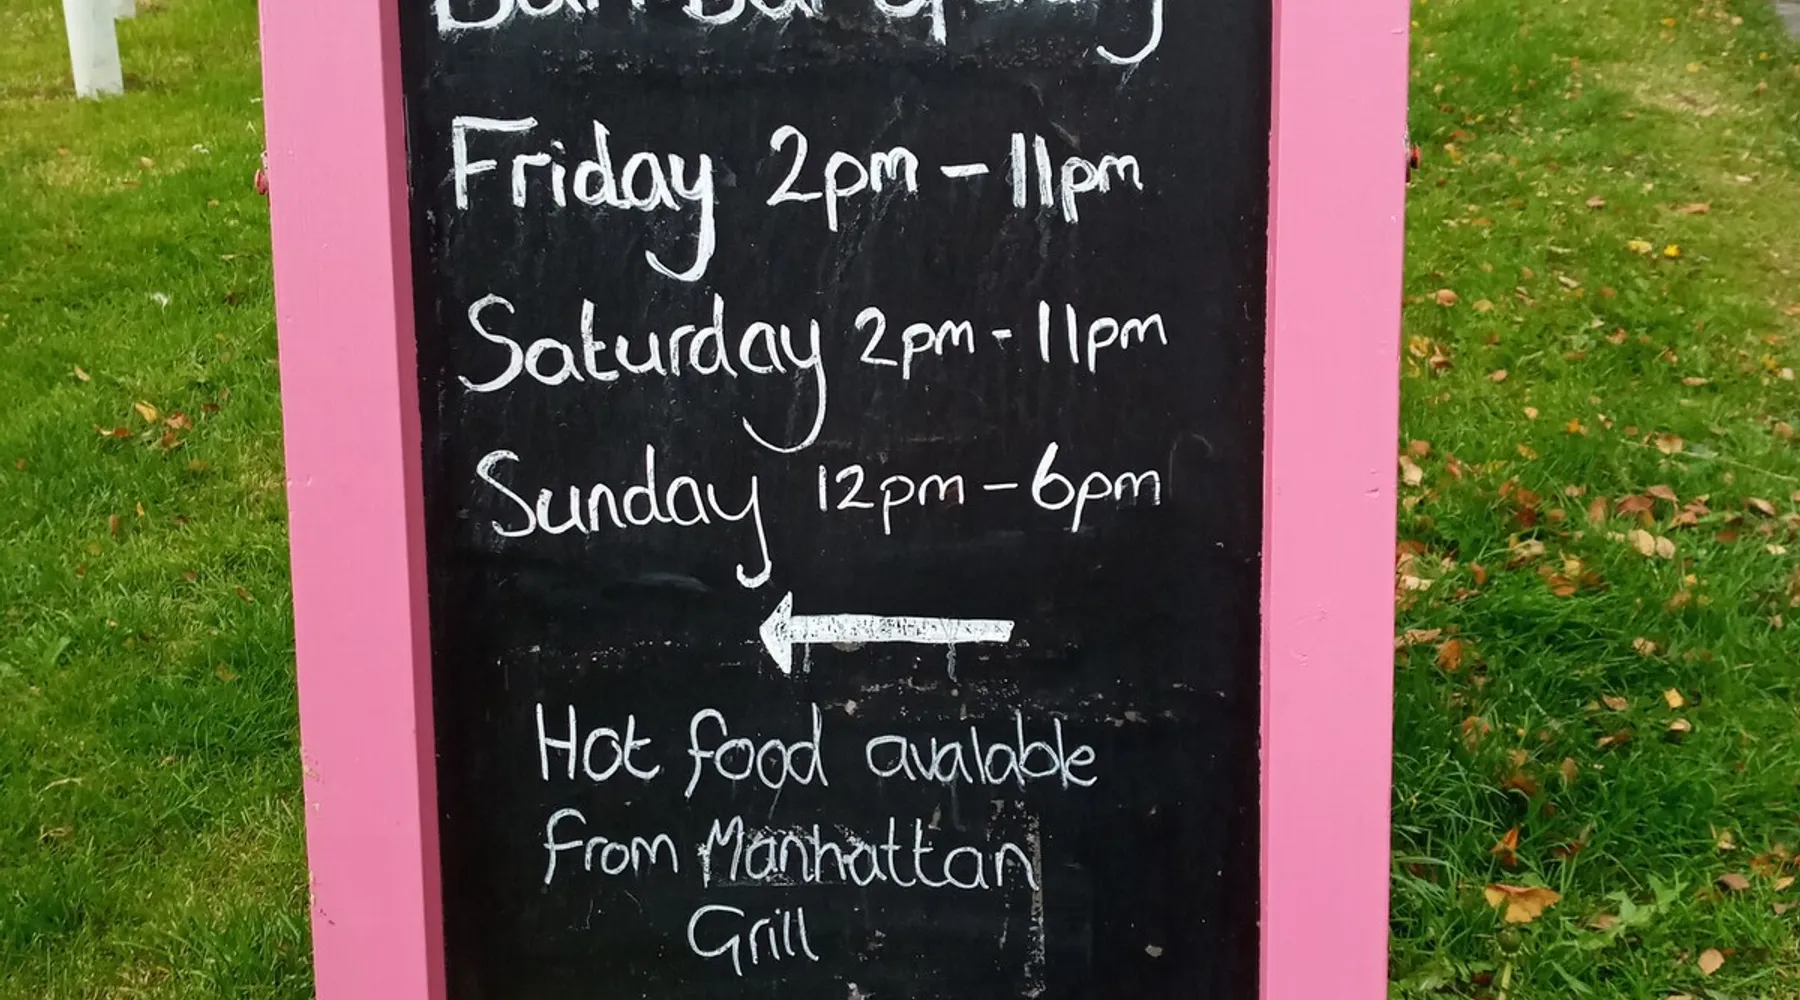 Friday 2pm - 11pm
Saturday 2pm - 11pm
Sunday 12pm - 6pm
Hot food avalable
from Manhattan
Grill